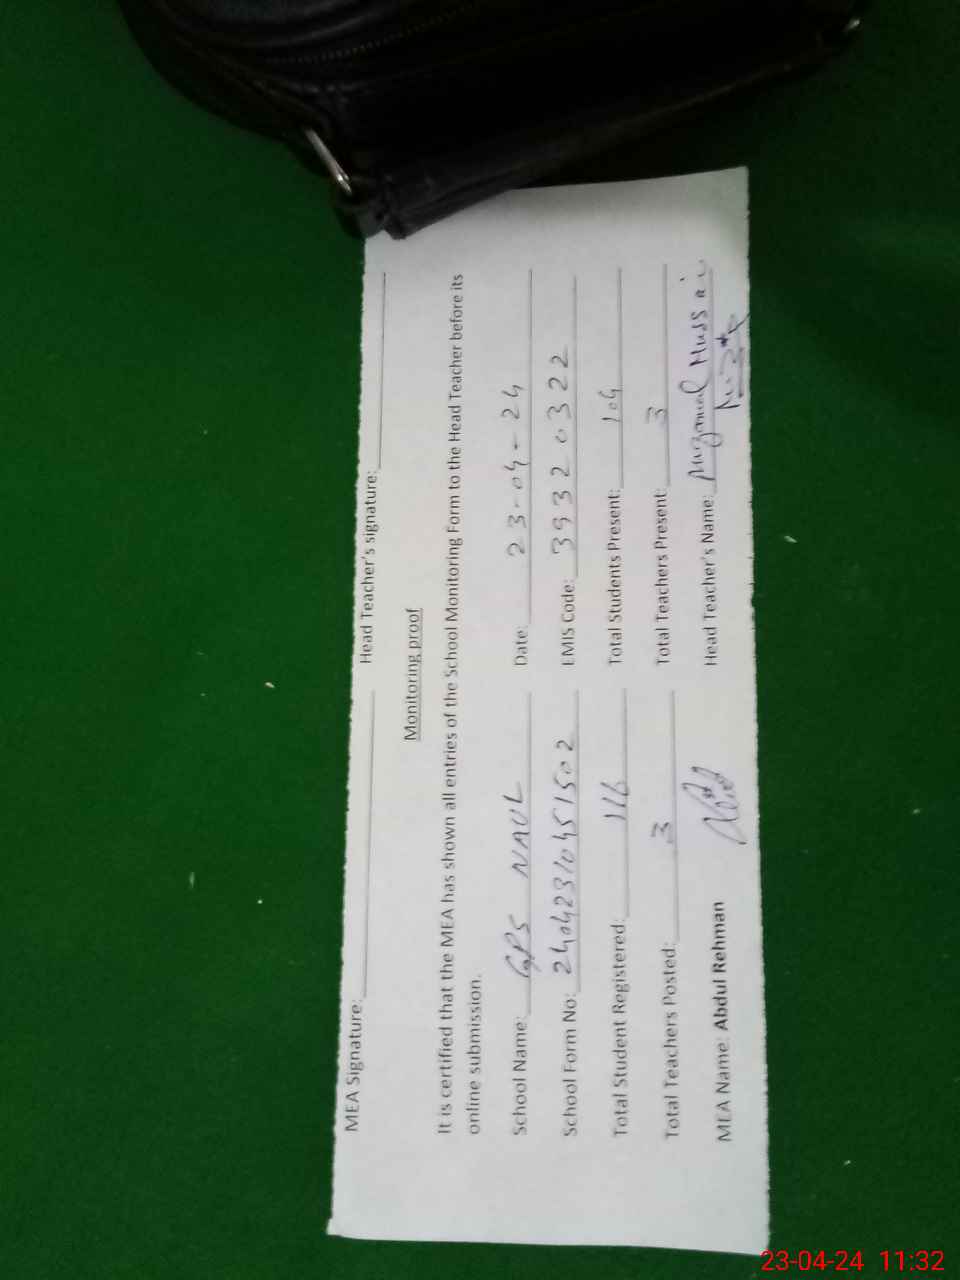 MEA Signature: Head Teacher's signature:
Monitoring proof
It is certified that the MEA has shown all entries of the School Monitoring Form to the Head Teacher before its
online submission.
School Name: GPS NAUL Date: 23-04-24
School Form No: 24042310451502 EMIS Code: 39320322
Total Student Registered: 116 Total Students Present: 104
Total Teachers Posted: 3 Total Teachers Present: 3
MEA Name: Abdul Rehman Head Teacher's Name: Muzamal Hussain
23-04-24 11:32